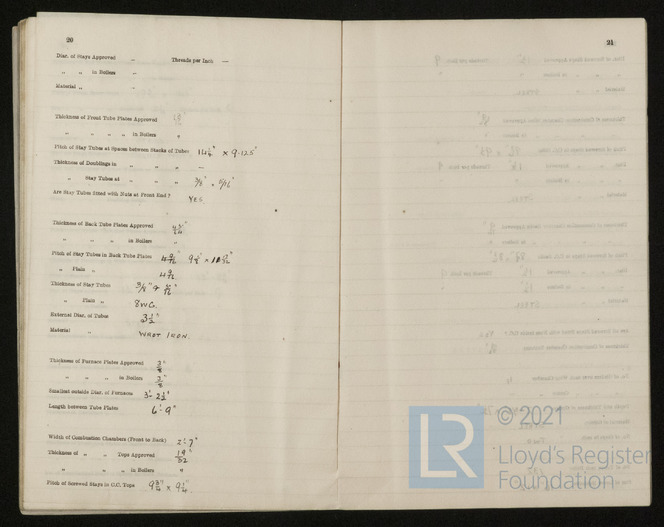 20
Diar. of Stays Approved – Threads per Inch –
„ „ in Boilers –
Material „ –
Thickness of Front Tube Plates Approved
„ „ „ „ in Boilers „
Pitch of Stay Tubes at Spaces between Stacks of Tubes 14¼" × 9.125"
Thickness of Doublings in „ „ –
„ Stay Tubes at „ „ 3/8" & 5/16"
Are Stay Tubes fitted with Nuts at Front End? Yes.
Thickness of Back Tube Plates Approved
„ „ „ in Boilers „
Pitch of Stay Tubes in Back Tube Plates
„ Plain „
Thickness of Stay Tubes 3/8" &
„ Plain „ 8 WG.
External Diar. of Tubes 3½"
Material „ WROT IRON.
Thickness of Furnace Plates Approved
„ „ „ in Boilers
Smallest outside Diar. of Furnaces 3'- 2½"
Length between Tube Plates 6'- 9"
Width of Combustion Chambers (Front to Back) 2'- 7"
Thickness of „ „ Tops Approved 19/32"
„ „ „ in Boilers „
Pitch of Screwed Stays in C.C. Tops 9¾" × 9¼"
21
© 2021
LR
Lloyd's Register
Foundation